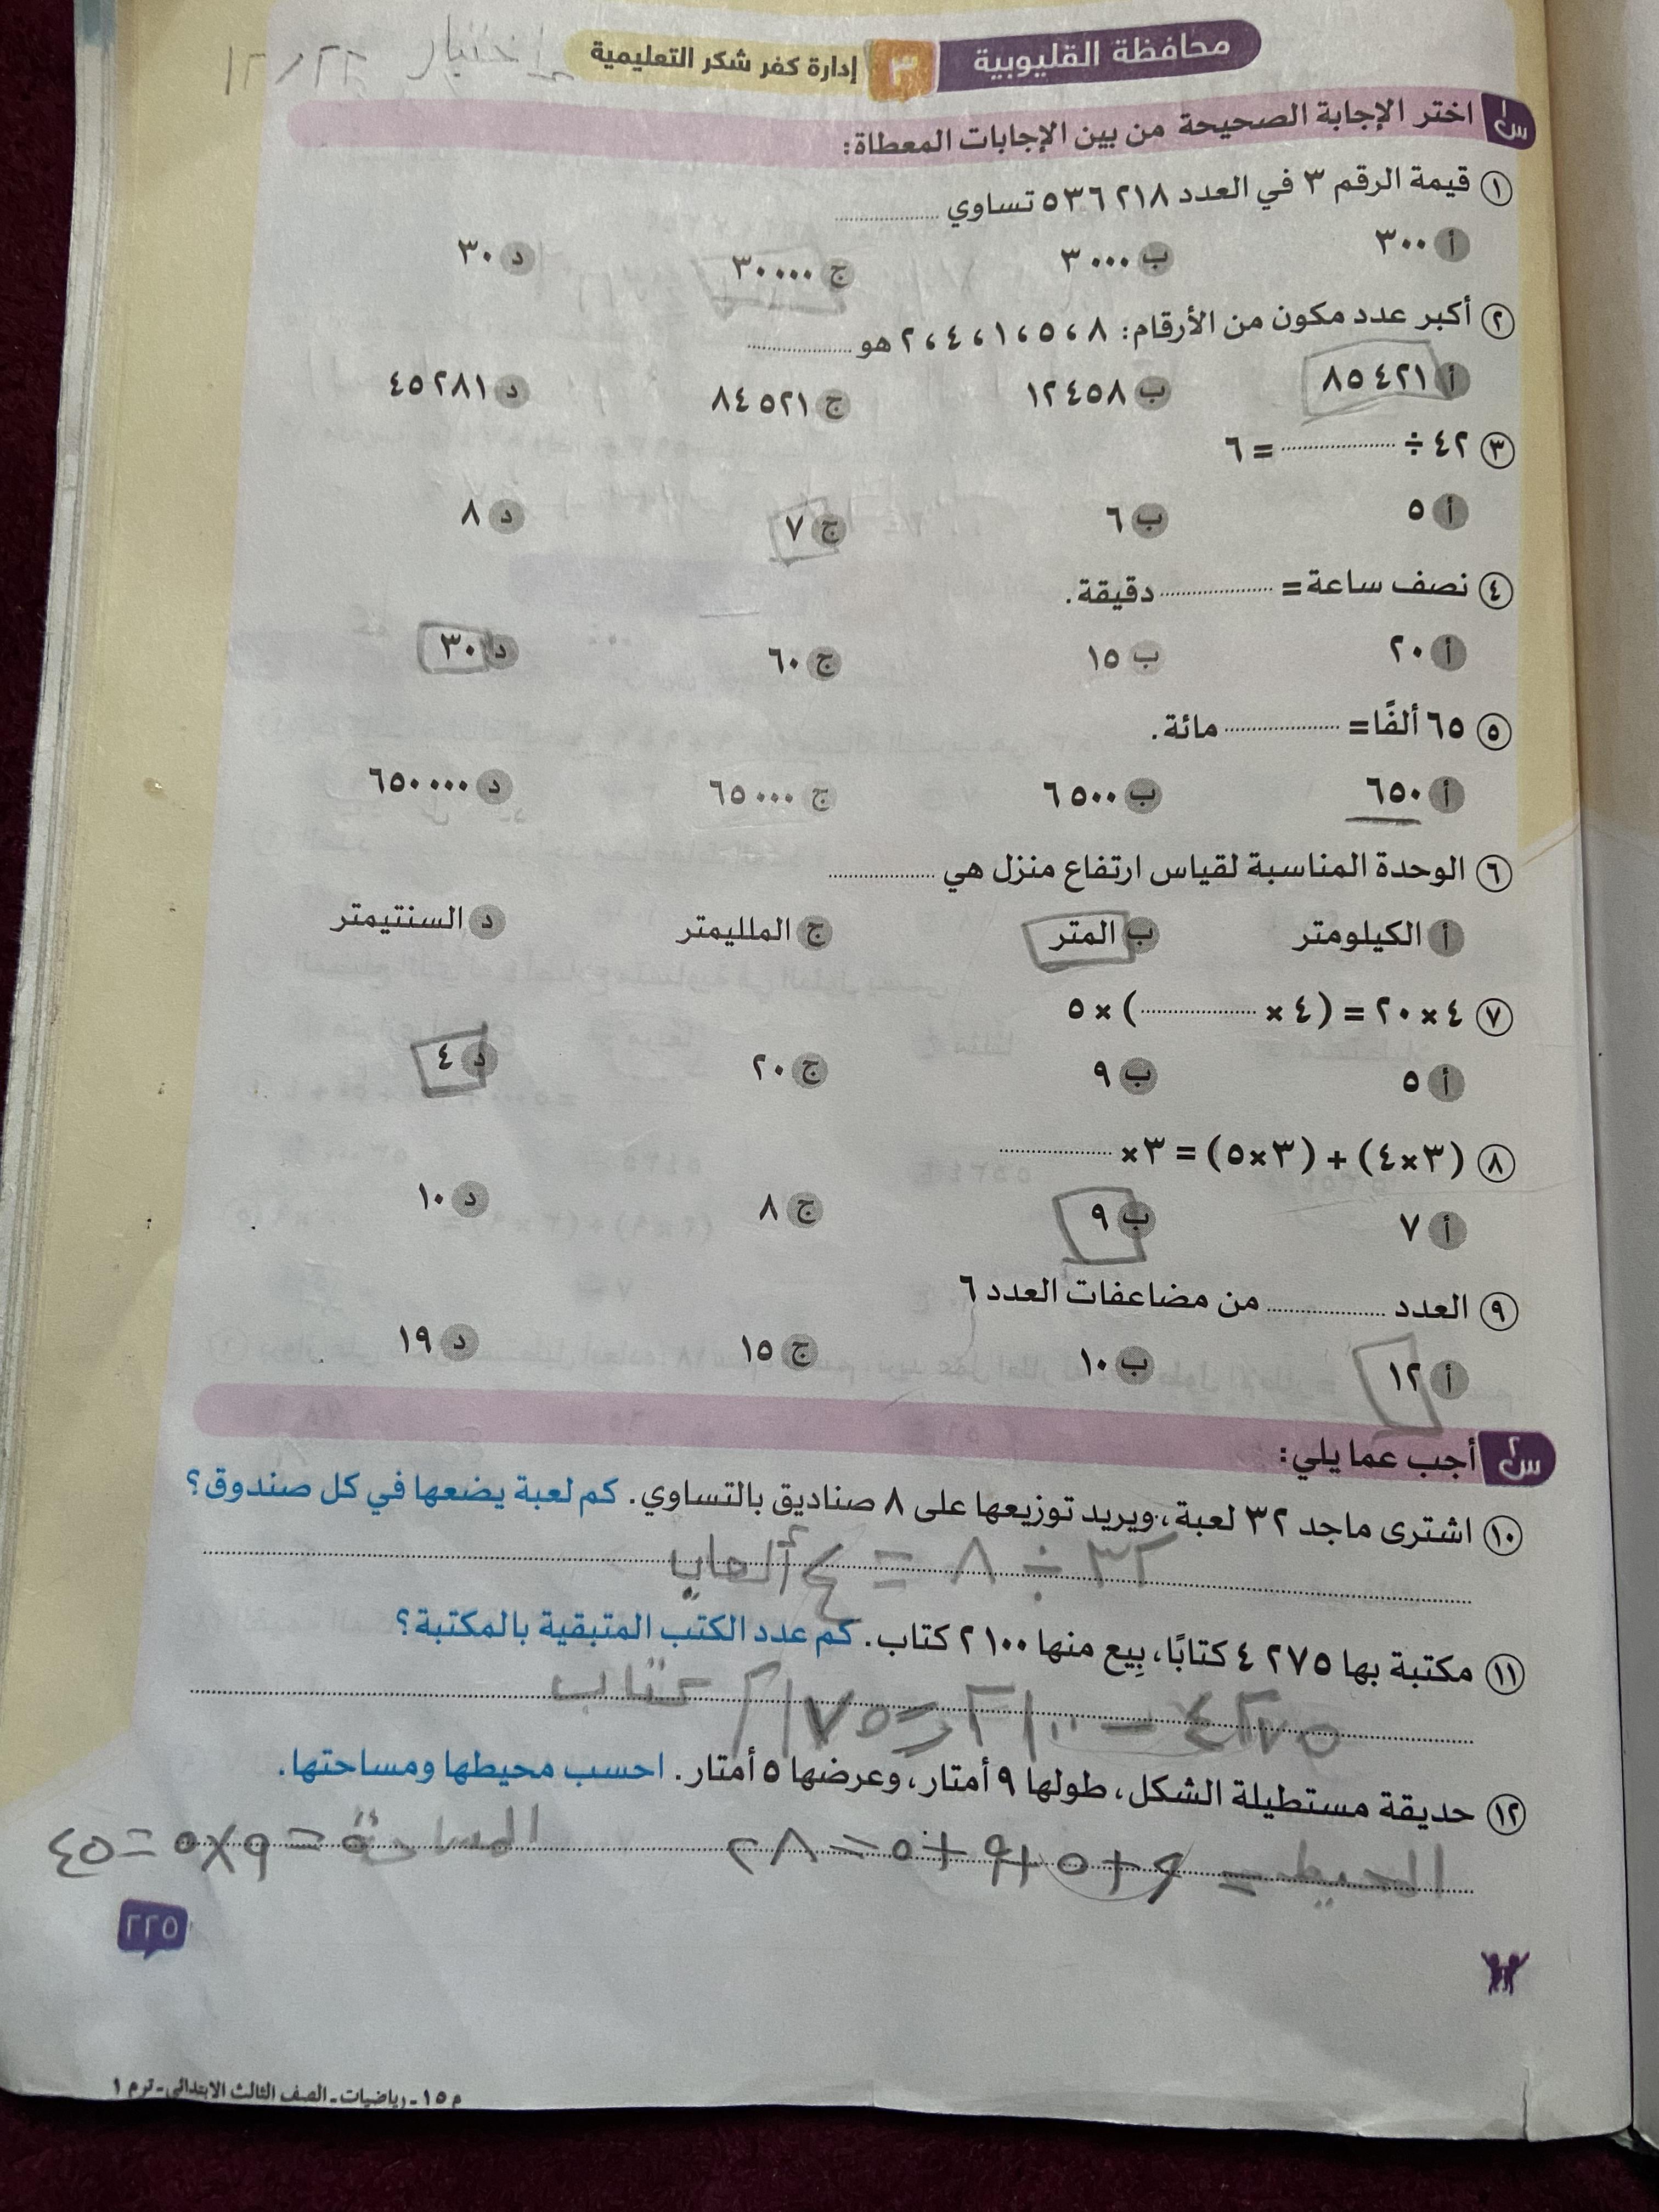 محافظة القليوبية ٣ إدارة كفر شكر التعليمية
اختبار ٢١/٢٢
س١ اختر الإجابة الصحيحة من بين الإجابات المعطاة:
١ قيمة الرقم ٣ في العدد ٢١٨ ٥٣٦ تساوي ..........
أ ٣٠٠ ب ٣٠٠٠ ج ٣٠٠٠٠ د ٣٠
٢ أكبر عدد مكون من الأرقام: ٨ ، ٥ ، ١ ، ٤ ، ٢ هو ..........
أ ٨٥٤٢١ ب ١٢٤٥٨ ج ٨٤٥٢١ د ٤٥٢٨١
٣ ٤٢ ÷ .......... = ٦
أ ٥ ب ٦ ج ٧ د ٨
٤ نصف ساعة = .......... دقيقة.
أ ٢٠ ب ١٥ ج ٦٠ د ٣٠
٥ ٦٥ ألفًا = .......... مائة.
أ ٦٥٠ ب ٦٥٠٠ ج ٦٥٠٠٠ د ٦٥٠٠٠٠
٦ الوحدة المناسبة لقياس ارتفاع منزل هي ..........
أ الكيلومتر ب المتر ج الملليمتر د السنتيمتر
٧ ٤ × ٢٠ = (٤ × ..........) × ٥
أ ٥ ب ٩ ج ٢٠ د ٤
٨ (٣×٤) + (٣×٥) = ٣× ..........
أ ٧ ب ٩ ج ٨ د ١٠
٩ العدد .......... من مضاعفات العدد ٦
أ ١٢ ب ١٠ ج ١٥ د ١٩
س٢ أجب عما يلي:
١٠ اشترى ماجد ٣٢ لعبة، ويريد توزيعها على ٨ صناديق بالتساوي. كم لعبة يضعها في كل صندوق؟
٣٢ ÷ ٨ = ٤ ألعاب
١١ مكتبة بها ٢٧٥ ٤ كتابًا، بِيع منها ٢١٠٠ كتاب. كم عدد الكتب المتبقية بالمكتبة؟
٤٢٧٥ - ٢١٠٠ = ٢١٧٥ كتاب
١٢ حديقة مستطيلة الشكل، طولها ٩ أمتار، وعرضها ٥ أمتار. احسب محيطها ومساحتها.
المحيط = ٩+٥+٩+٥=٢٨ المساحة = ٩×٥=٤٥
٢٢٥
م ١٥ - رياضيات - الصف الثالث الابتدائي - ترم ١